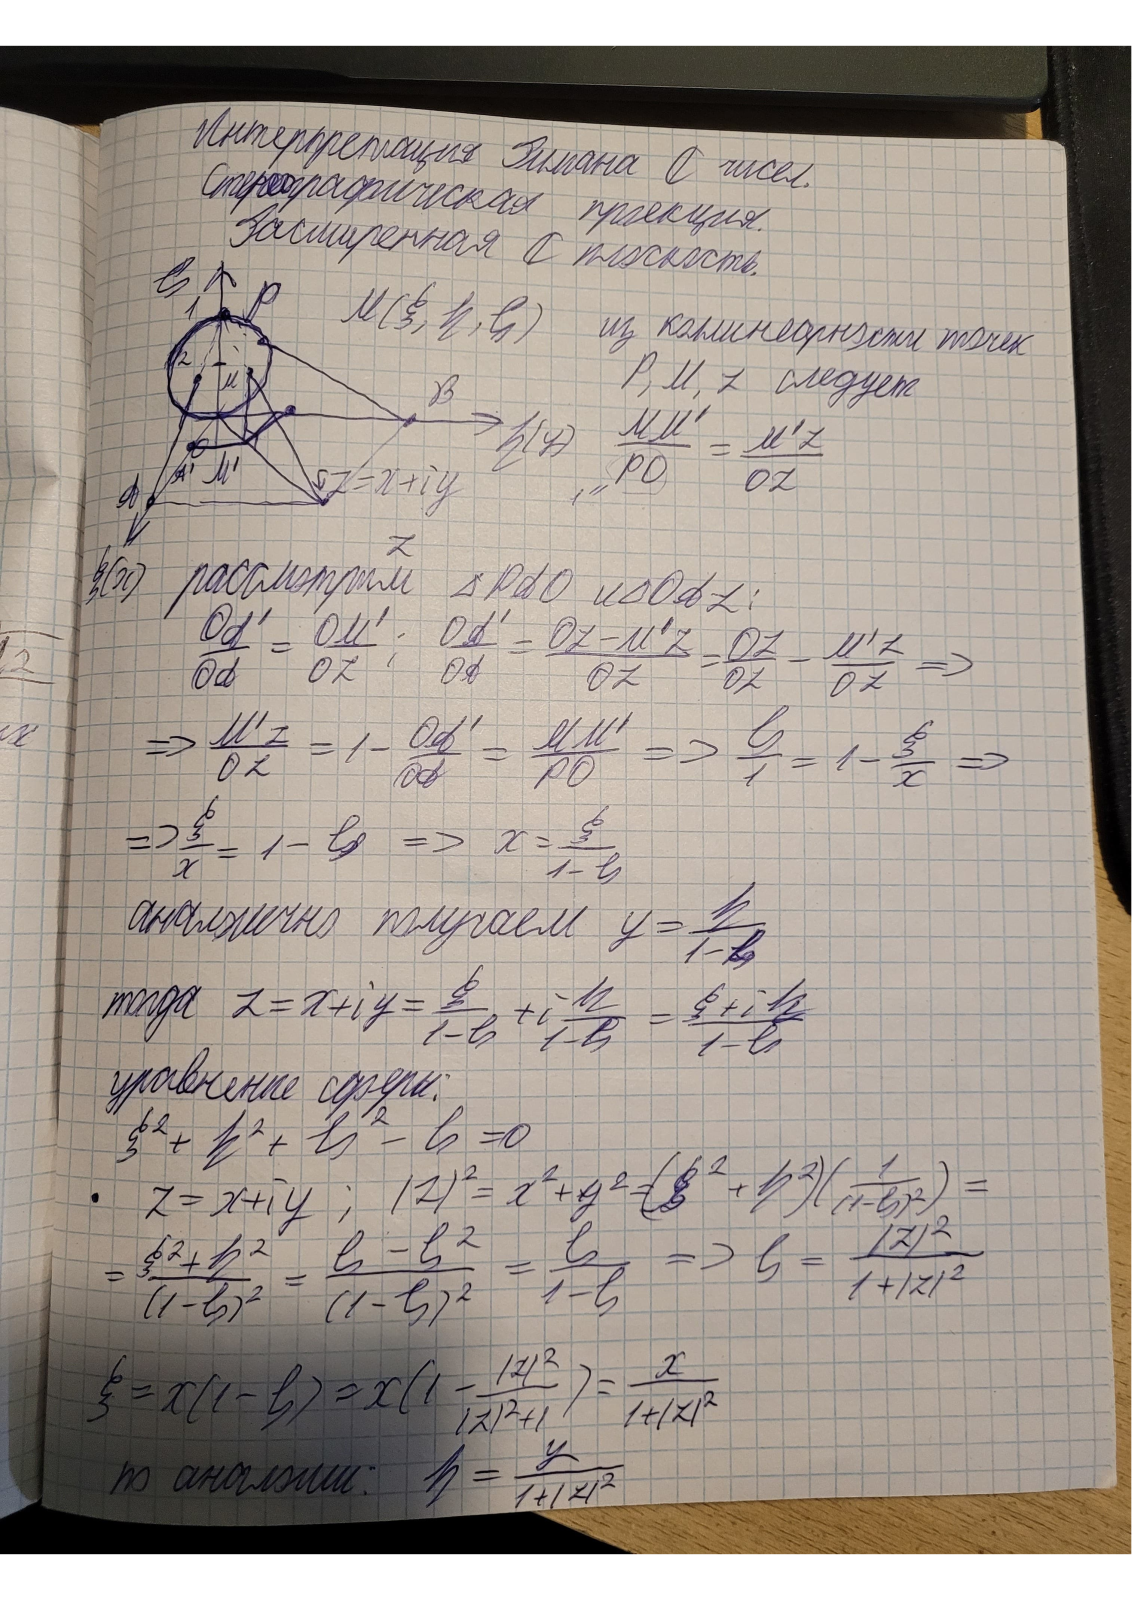 Интерпретация Римана ℂ чисел.
Стереографическая проекция.
Расширенная ℂ плоскость.
ζ
1 P
M(ξ, η, ζ) из коллинеарности точек
P, M, z следует
M B
η(y) MM'/PO = M'z/Oz
A' M' z = x+iy
A
z
ξ(x) рассмотрим △PAO и △OAz:
OA'/OA = OM'/Oz; OA'/OA = (Oz − M'z)/Oz = Oz/Oz − M'z/Oz =>
=> M'z/Oz = 1 − OA'/OA = MM'/PO => ζ/1 = 1 − ξ/x =>
=> ξ/x = 1 − ζ => x = ξ/(1−ζ)
аналогично получаем y = η/(1−ζ)
тогда z = x+iy = ξ/(1−ζ) + i η/(1−ζ) = (ξ+iη)/(1−ζ)
уравнение сферы:
ξ² + η² + ζ² − ζ = 0
• z = x+iy; |z|² = x²+y² = (ξ²+η²)(1/(1−ζ)²) =
= (ξ²+η²)/(1−ζ)² = (ζ−ζ²)/(1−ζ)² = ζ/(1−ζ) => ζ = |z|²/(1+|z|²)
ξ = x(1−ζ) = x(1 − |z|²/(|z|²+1)) = x/(1+|z|²)
по аналогии: η = y/(1+|z|²)